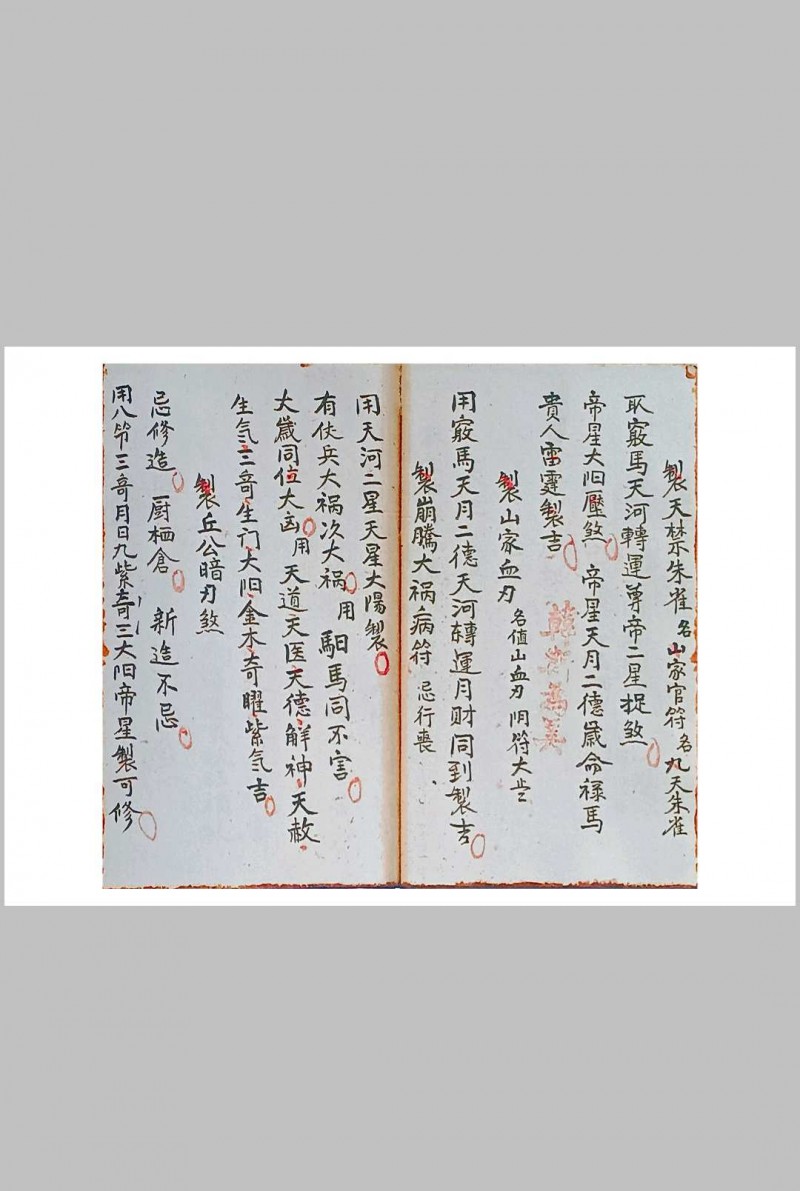 製天禁朱雀 名山家官符 名九天朱雀
取竅馬天河轉運尊帝二星捉煞
帝星大阳壓煞 帝星天月二德嵗命禄馬
貴人雷霆製吉
製山家血刃 名值山血刃 阴符大
用竅馬天月二德天河轉運月财同到製吉
製崩騰大祸病符 忌行喪
用天河二星天星大陽製
有伏兵大祸次大祸 用 馹馬同不害
大嵗同位大凶 用 天道天医天德解神 天赦
生气三奇生门大阳金木奇曜紫气吉
製丘公暗刃煞
忌修造 厨栖倉 新造不忌
用八节三奇月日九紫奇三大阳帝星製可修